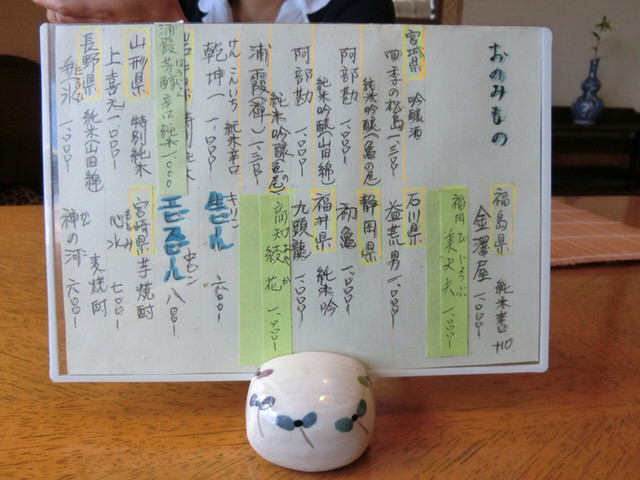 おのみもの
宮城県 吟醸酒
四季の松島 一、三〇〇ー
純米吟醸(亀の尾)
阿部勘 一、〇〇〇ー
純米吟醸(山田錦)
阿部勘 一、〇〇〇ー
純米吟醸
浦霞(禅) 一、三〇〇ー
けんこんいち 純米辛口
乾坤一 一、〇〇〇ー
特別純米
浦霞芳醸辛口純米 一、〇〇〇
山形県 特別純米
上喜元 一、〇〇〇ー
長野県 純米山田錦
一、〇〇〇ー
福島県 純米
一、〇〇〇ー
福岡 びじょうふ
美丈夫 一、〇〇〇ー
石川県
益荒男 一、〇〇〇ー
静岡県
初亀 一、〇〇〇ー
福井県 純米吟
九頭龍 一、〇〇〇ー
高知 綾花
キリン
生ビール 六〇〇ー
エビスビール 八〇〇ー
宮崎県 芋焼酎
七〇〇ー
麦焼酎
神の河 六〇〇ー